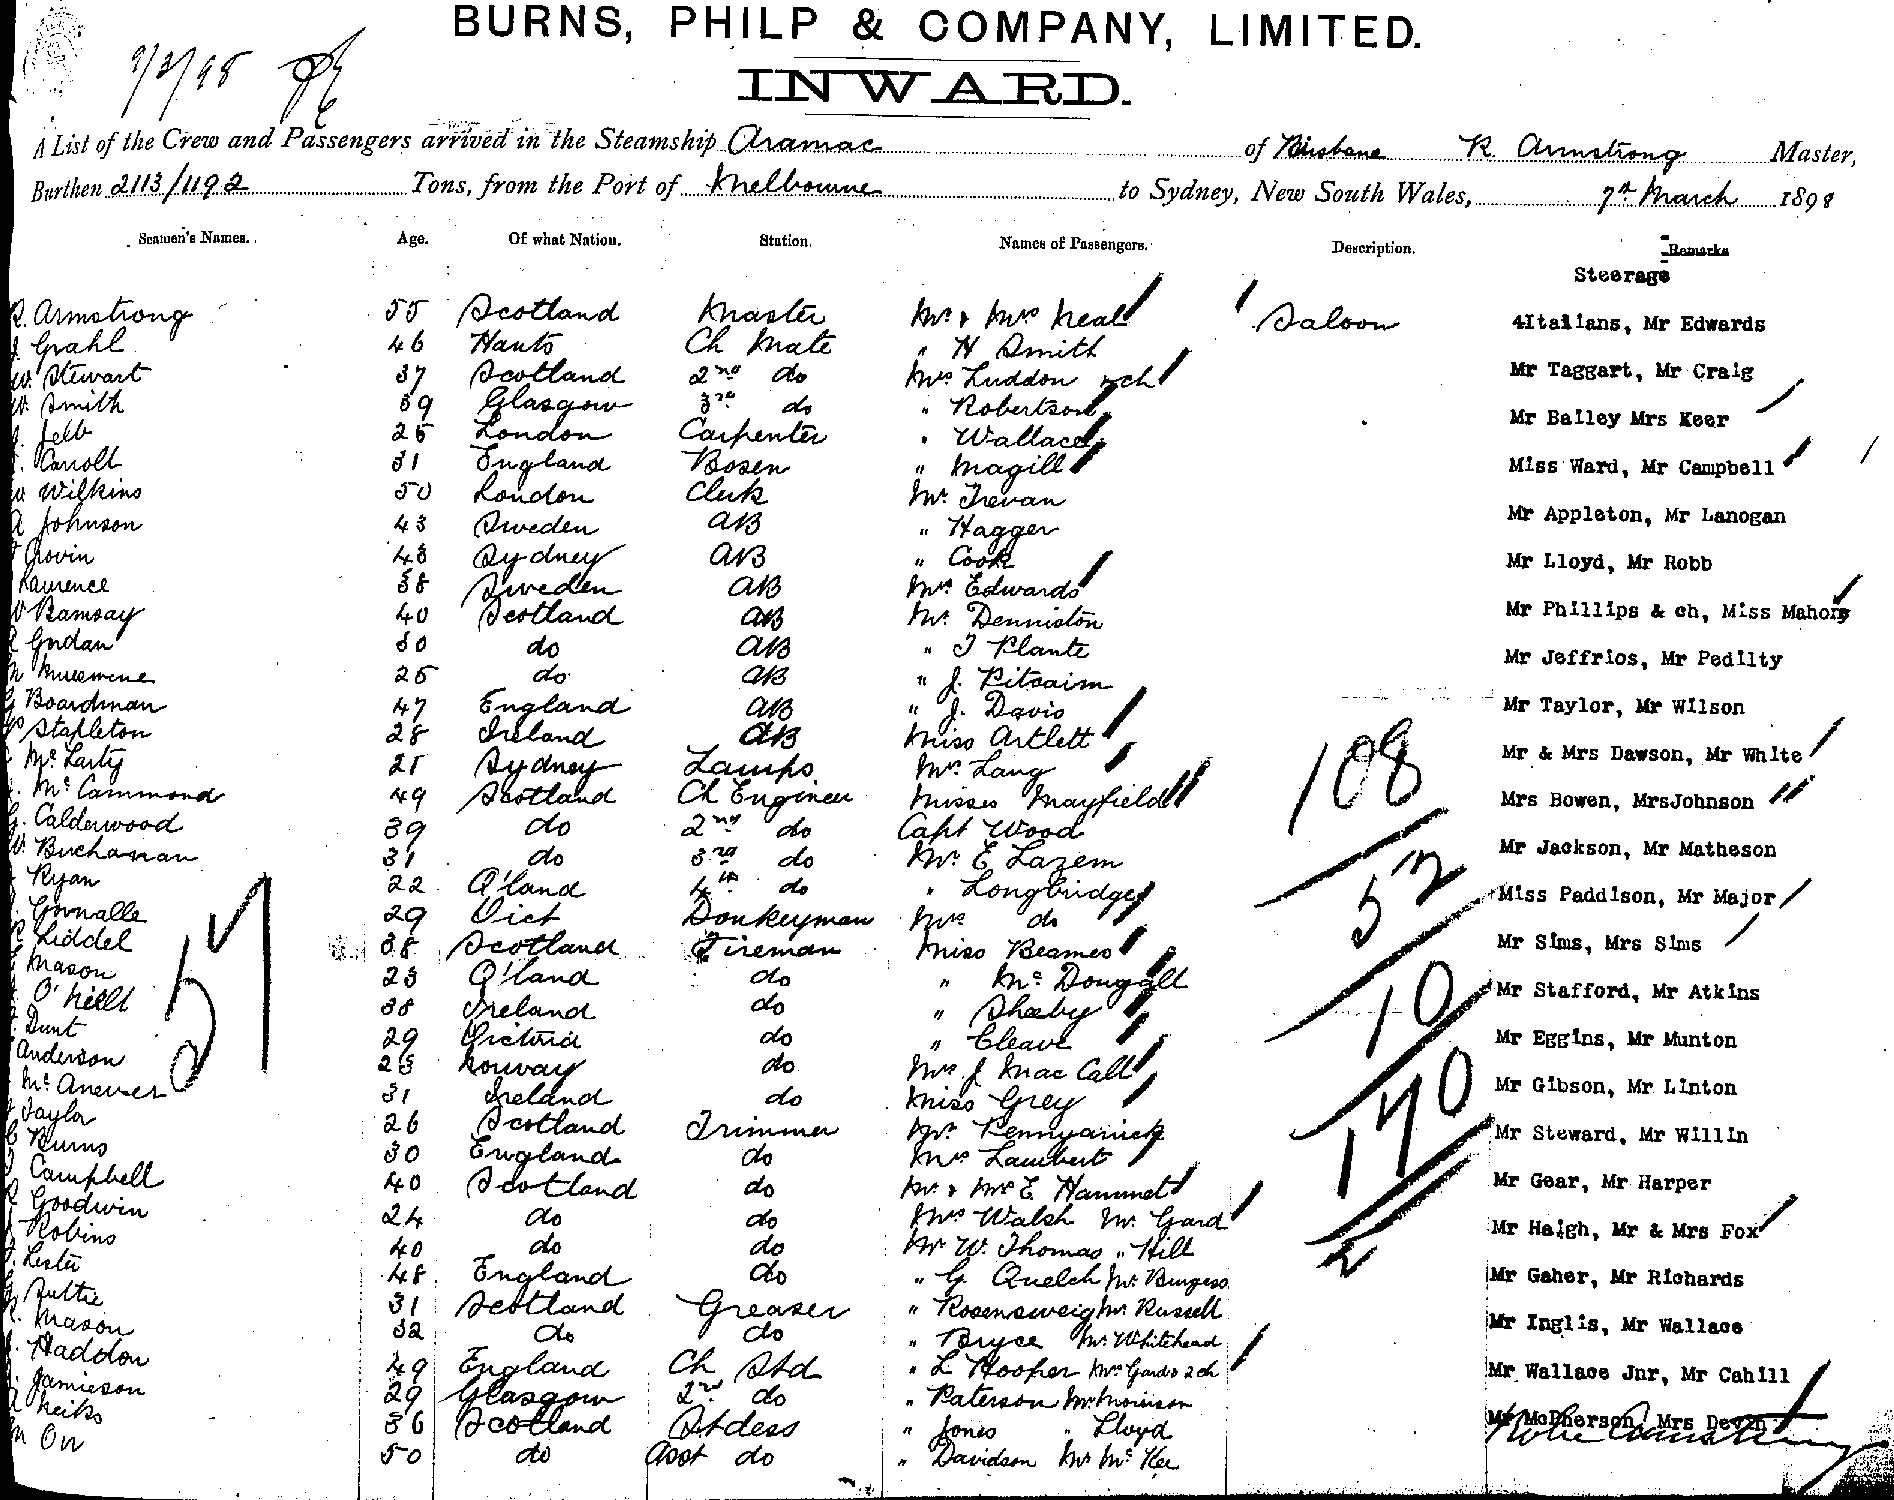 BURNS, PHILP & COMPANY, LIMITED.
9/3/98
INWARD.
A List of the Crew and Passengers arrived in the Steamship Aramac of Brisbane R Armstrong Master,
Burthen 2113/1192 Tons, from the Port of Melbourne to Sydney, New South Wales, 7th March 1898
Seamen's Names. Age. Of what Nation. Station. Names of Passengers. Description. Remarks
Steerage
R. Armstrong 55 Scotland Master Mr & Mrs Neal Saloon 4Italians, Mr Edwards
J. Grahl 46 Hants Ch Mate " H Smith
W. Stewart 37 Scotland 2nd do Mrs Luddon & ch Mr Taggart, Mr Craig
W. Smith 39 Glasgow 3rd do " Robertson
J. Jelb 25 London Carpenter " Wallace Mr Bailey Mrs Keer
Carroll 31 England Bosen " Magill Miss Ward, Mr Campbell
W Wilkins 50 London Clerk Mr Trevan
A Johnson 43 Sweden AB " Hagger Mr Appleton, Mr Lanogan
Govin 48 Sydney AB " Cook Mr Lloyd, Mr Robb
Laurence 38 Sweden AB Mrs Edwards
W Ramsay 40 Scotland AB Mr Denniston Mr Phillips & ch, Miss Mahony
Gordan 30 do AB " T Plante
25 do AB " J. Pitcairn Mr Jeffrios, Mr Pedilty
G Boardman 47 England AB " J. Davis Mr Taylor, Mr Wilson
Stapleton 28 Ireland AB Miss Artlett
McLarty 21 Sydney Lamps Mrs Lang Mr & Mrs Dawson, Mr White
McCammond 49 Scotland Ch Engineer Misses Mayfield Mrs Bowen, MrsJohnson
G. Calderwood 39 do 2nd do Capt Wood
W. Buchanan 31 do 3rd do Mr E Lazem Mr Jackson, Mr Matheson
Ryan 22 Q'land 4th do " Longbridge Miss Paddison, Mr Major
Gornalle 29 Vict Donkeyman Mrs do
Liddel 38 Scotland Fireman Miss Beames Mr Sims, Mrs Sims
Mason 23 Q'land do " McDougall Mr Stafford, Mr Atkins
O'Neill 38 Ireland do " Sheeby
Dunt 29 Victoria do " Cleave Mr Eggins, Mr Munton
Anderson 23 Norway do Mrs J MacCall
31 Ireland do Miss Grey Mr Gibson, Mr Linton
Taylor 26 Scotland Trimmer Mr Steward, Mr Willin
Burns 30 England do Mrs Lambert
Campbell 40 Scotland do Mr & Mrs E Hammet Mr Gear, Mr Harper
Goodwin 24 do do Mrs Walsh Mr Gard
Robins 40 do do Mr W. Thomas " Hill Mr Haigh, Mr & Mrs Fox
Lester 48 England do " G Quelch Mr Burgess Mr Gaher, Mr Richards
Suttie 31 Scotland Greaser " Rosensweig Mr Russell
Mason 32 do do " Bryce Mr Whitehead Mr Inglis, Mr Wallace
J. Haddon 49 England Ch Std " L Hooper Mrs Gards 2 ch Mr Wallace Jnr, Mr Cahill
Jamieson 29 Glasgow 2nd do " Paterson Mr Morrison
36 Scotland Stdess " Jones " Lloyd Mr McPherson, Mrs Devin
Orr 50 do Asst do " Davidson Mr McKee
57
108
52
10
170
2